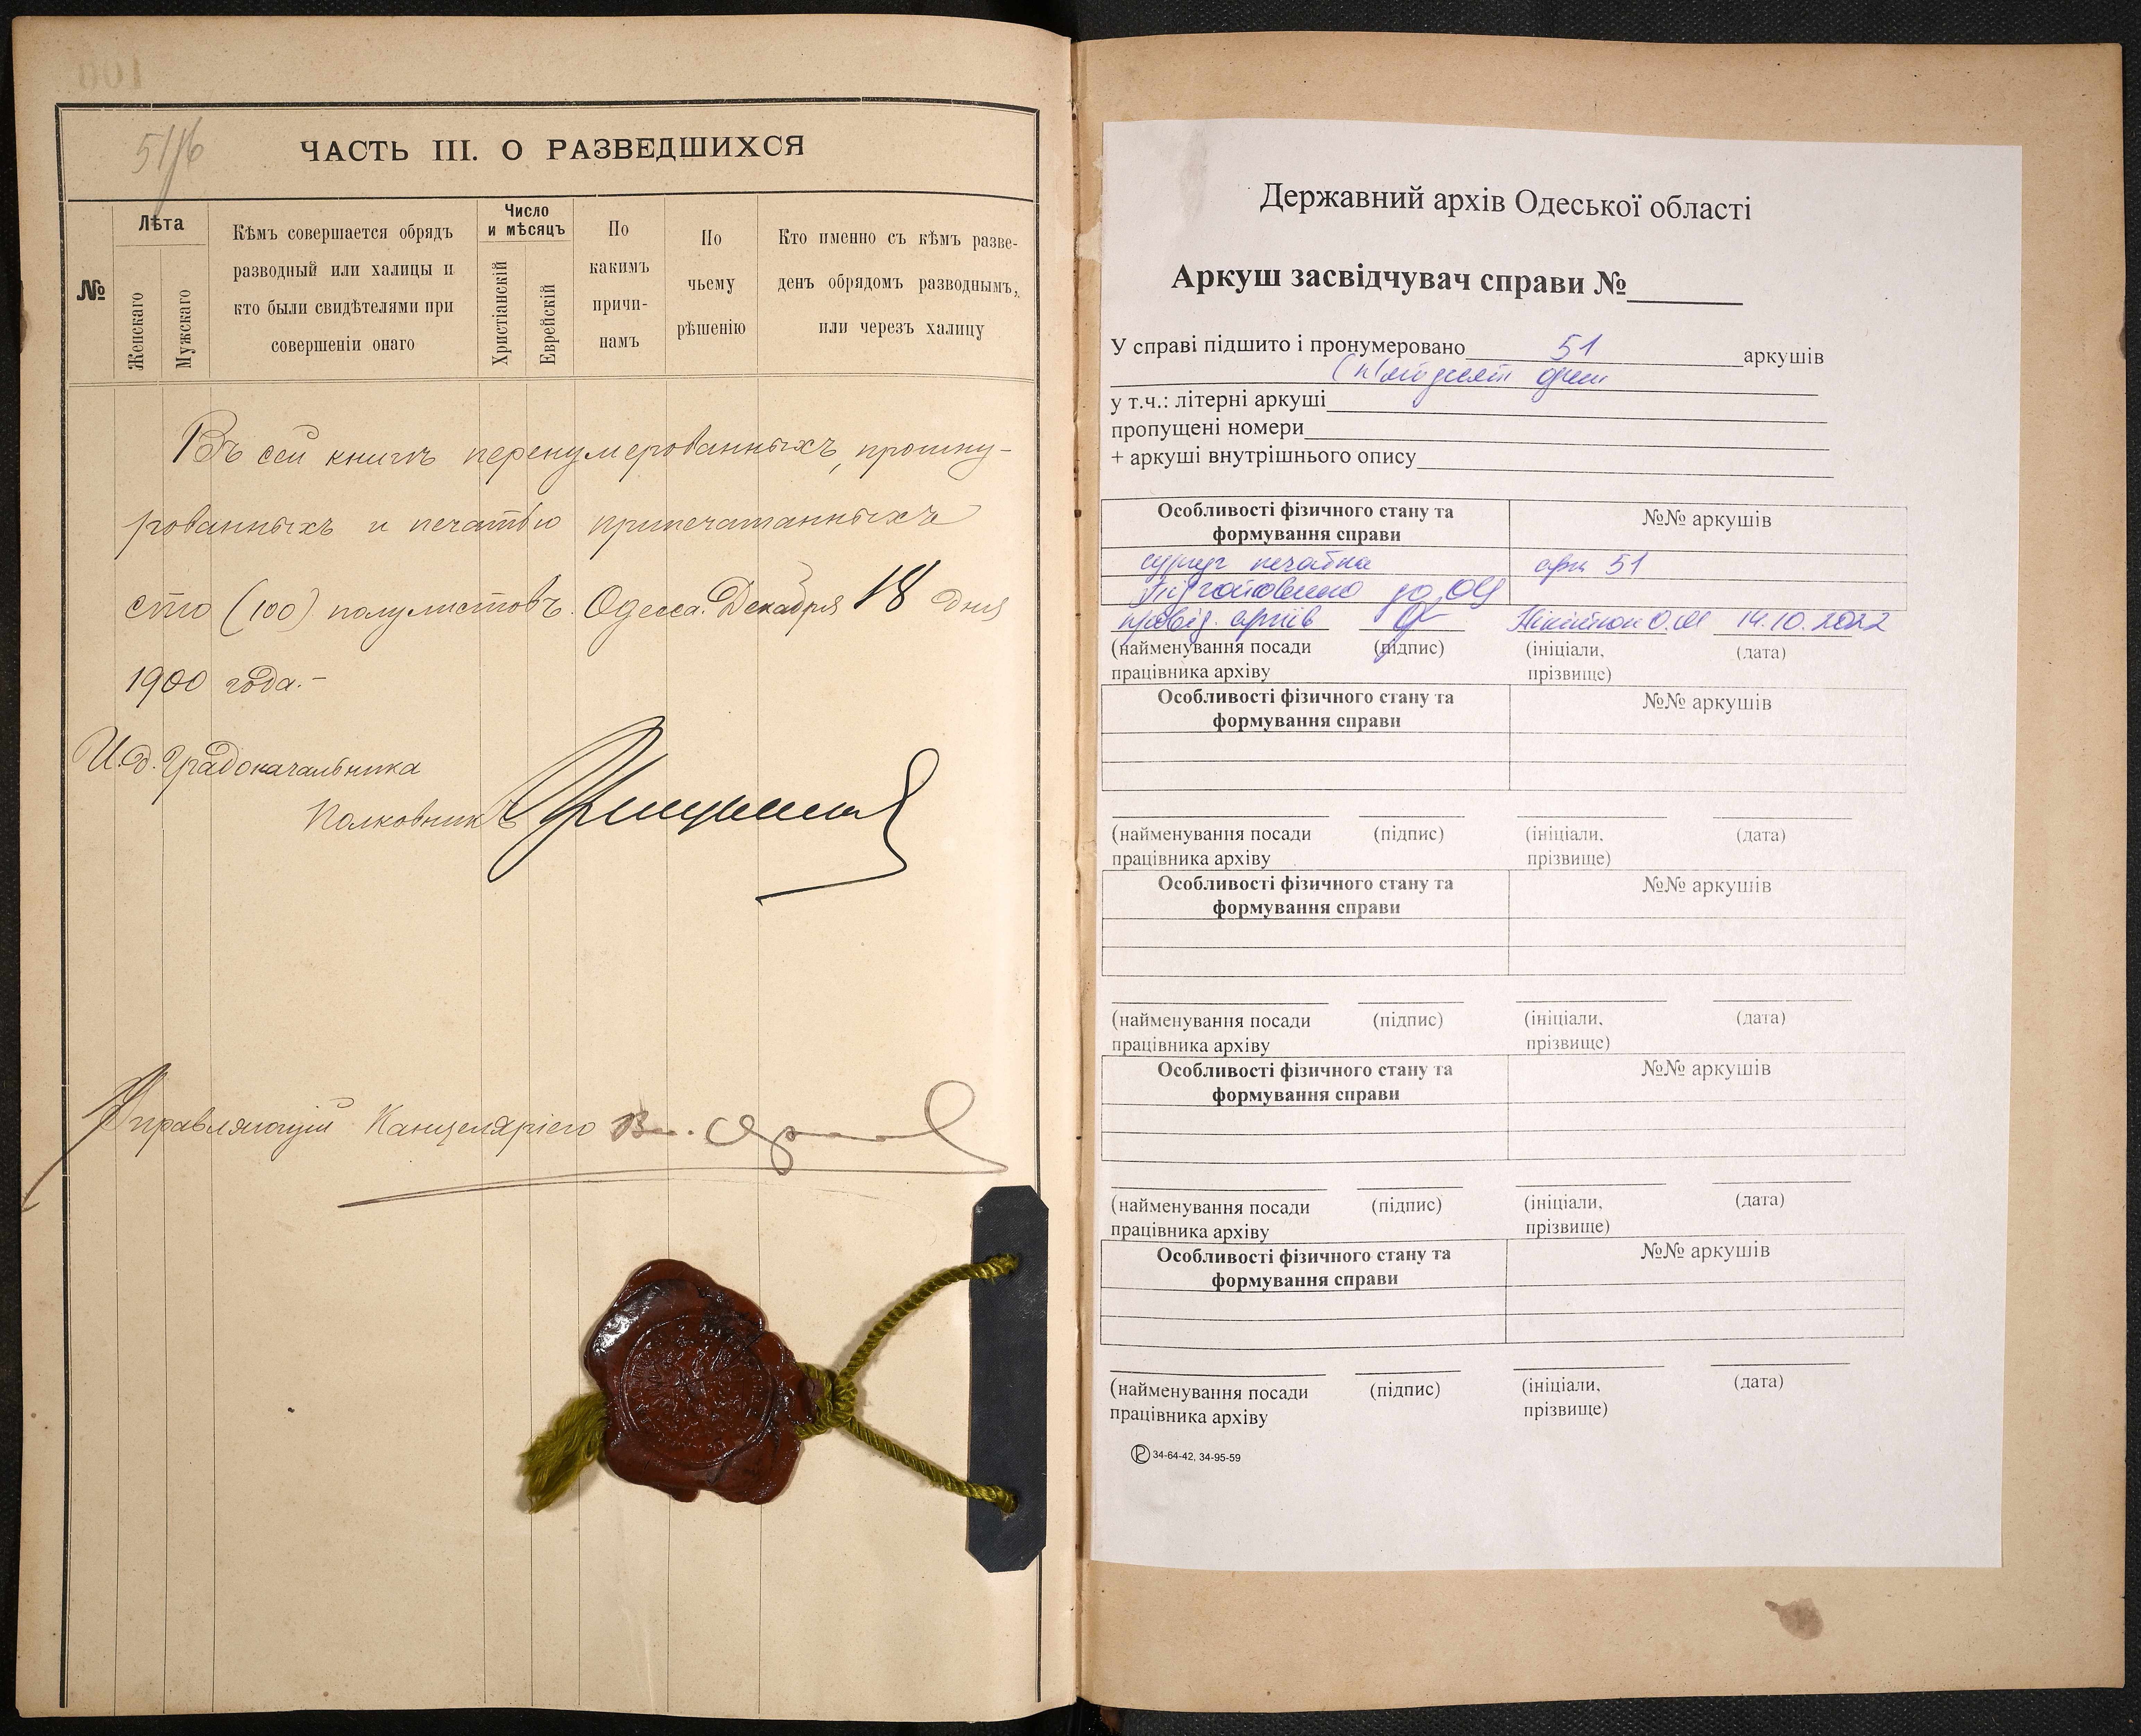 51/6
ЧАСТЬ III. О РАЗВЕДШИХСЯ
№
Лѣта
Женскаго
Мужскаго
Кѣмъ совершается обрядъ
разводный или халицы и
кто были свидѣтелями при
совершеніи онаго
Число
и мѣсяцъ
Христіанскій
Еврейскій
По
какимъ
причи-
намъ
По
чьему
рѣшенію
Кто именно съ кѣмъ разве-
денъ обрядомъ разводнымъ,
или черезъ халицу
Въ сей книгѣ перенумерованныхъ, прошну-
рованныхъ и печатью припечатанныхъ
сто (100) полулистовъ. Одесса. Декабря 18 дня
1900 года.-
И.д. Градоначальника
Полковникъ
Управляющій Канцеляріею
Державний архів Одеської області
Аркуш засвідчувач справи №
У справі підшито і пронумеровано 51 аркушів
(п'ятдесят один
у т.ч.: літерні аркуші
пропущені номери
+ аркуші внутрішнього опису
Особливості фізичного стану та
формування справи
№№ аркушів
сургуч печатка арк 51
Підготовлено до
провід. архів 14.10.2022
(найменування посади
працівника архіву
(підпис)
(ініціали,
прізвище)
(дата)
Особливості фізичного стану та
формування справи
№№ аркушів
(найменування посади
працівника архіву
(підпис)
(ініціали,
прізвище)
(дата)
Особливості фізичного стану та
формування справи
№№ аркушів
(найменування посади
працівника архіву
(підпис)
(ініціали,
прізвище)
(дата)
Особливості фізичного стану та
формування справи
№№ аркушів
(найменування посади
працівника архіву
(підпис)
(ініціали,
прізвище)
(дата)
Особливості фізичного стану та
формування справи
№№ аркушів
(найменування посади
працівника архіву
(підпис)
(ініціали,
прізвище)
(дата)
34-64-42, 34-95-59